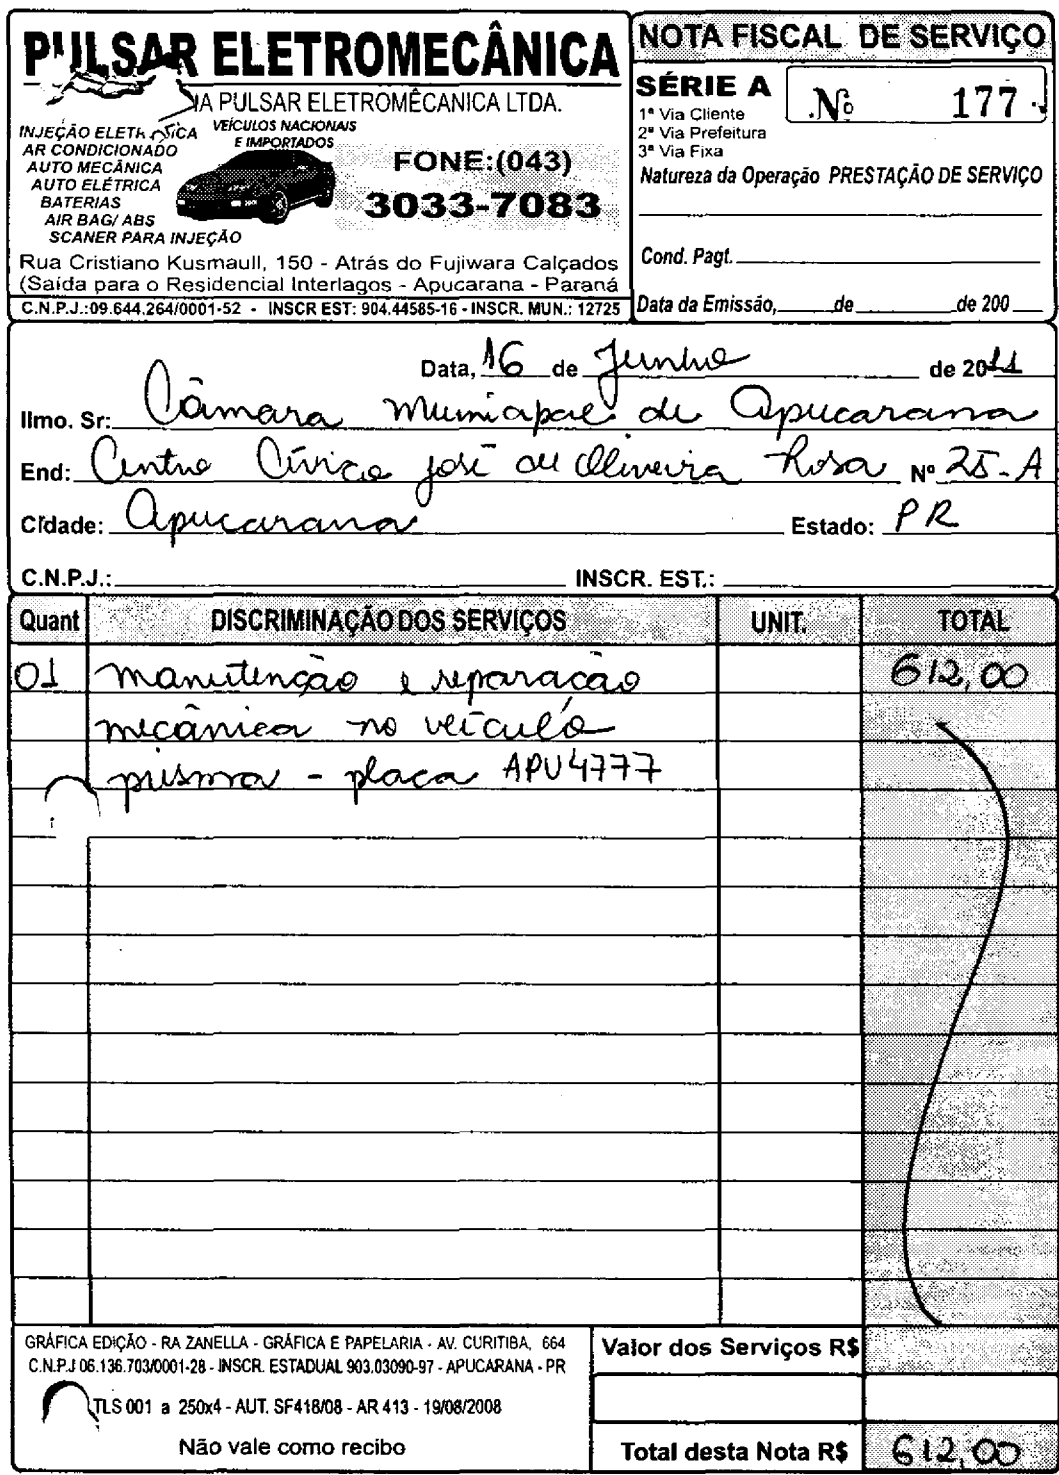 PULSAR ELETROMECÂNICA
PULSAR ELETROMÊCANICA LTDA.
INJEÇÃO ELETRÔNICA
AR CONDICIONADO
AUTO MECÂNICA
AUTO ELÉTRICA
BATERIAS
AIR BAG/ ABS
SCANER PARA INJEÇÃO
VEÍCULOS NACIONAIS
E IMPORTADOS
FONE:(043)
3033-7083
Rua Cristiano Kusmaull, 150 - Atrás do Fujiwara Calçados
(Saída para o Residencial Interlagos - Apucarana - Paraná
C.N.P.J.:09.644.264/0001-52 - INSCR EST: 904.44585-16 - INSCR. MUN.: 12725
NOTA FISCAL DE SERVIÇO
SÉRIE A
Nº 177
1ª Via Cliente
2ª Via Prefeitura
3ª Via Fixa
Natureza da Operação PRESTAÇÃO DE SERVIÇO
Cond. Pagt.
Data da Emissão, de de 200
Data, 16 de Junho de 2011
Ilmo. Sr: Câmara Municipal de Apucarana
End: Centro Cívico José de Oliveira Rosa Nº 25-A
Cidade: Apucarana Estado: PR
C.N.P.J.: INSCR. EST.:
Quant DISCRIMINAÇÃO DOS SERVIÇOS UNIT. TOTAL
01 manutenção e reparação 612,00
mecânica no veículo
prisma - placa APU4777
GRÁFICA EDIÇÃO - RA ZANELLA - GRÁFICA E PAPELARIA - AV. CURITIBA, 664
C.N.P.J 06.136.703/0001-28 - INSCR. ESTADUAL 903.03090-97 - APUCARANA - PR
TLS 001 a 250x4 - AUT. SF418/08 - AR 413 - 19/08/2008
Não vale como recibo
Valor dos Serviços R$
Total desta Nota R$ 612,00